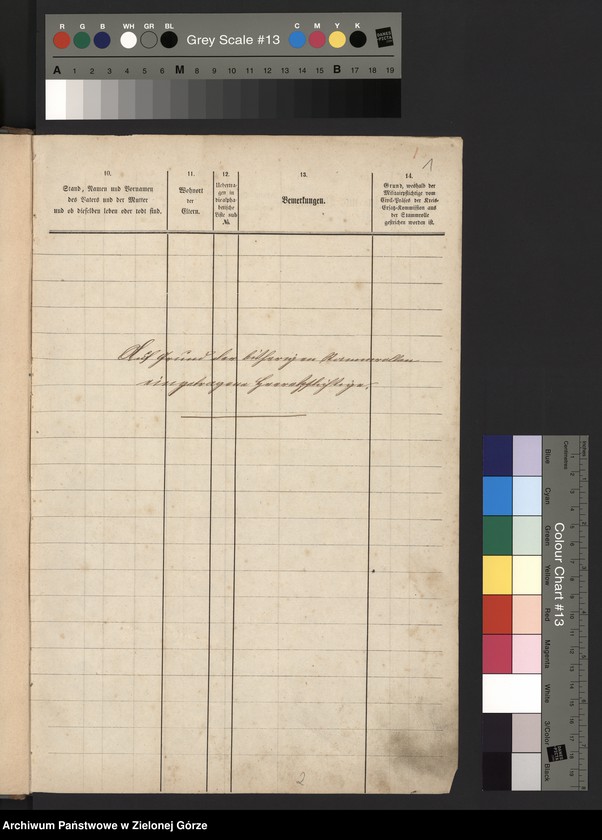 R G B WH GR BL Grey Scale #13 C M Y K
A 1 2 3 4 5 6 M 8 9 10 11 12 13 14 15 B 17 18 19
1
10.
Stand, Namen und Vornamen
des Vaters und der Mutter
und ob dieselben leben oder todt sind.
11.
Wohnort
der
Eltern.
12.
Uebertra-
gen in
die alpha-
betische
Liste sub
№.
13.
Bemerkungen.
14.
Grund, weshalb der
Militairpflichtige vom
Civil-Präses der Kreis-
Ersatz-Kommission aus
der Stammrolle
gestrichen worden ist.
Auf Grund der bisherigen Stammrollen
eingetragene Heerespflichtige.
2
Colour Chart #13
Blue
Cyan
Green
Yellow
Red
Magenta
White
3/Color
Black
Centimetres
Inches
Archiwum Państwowe w Zielonej Górze